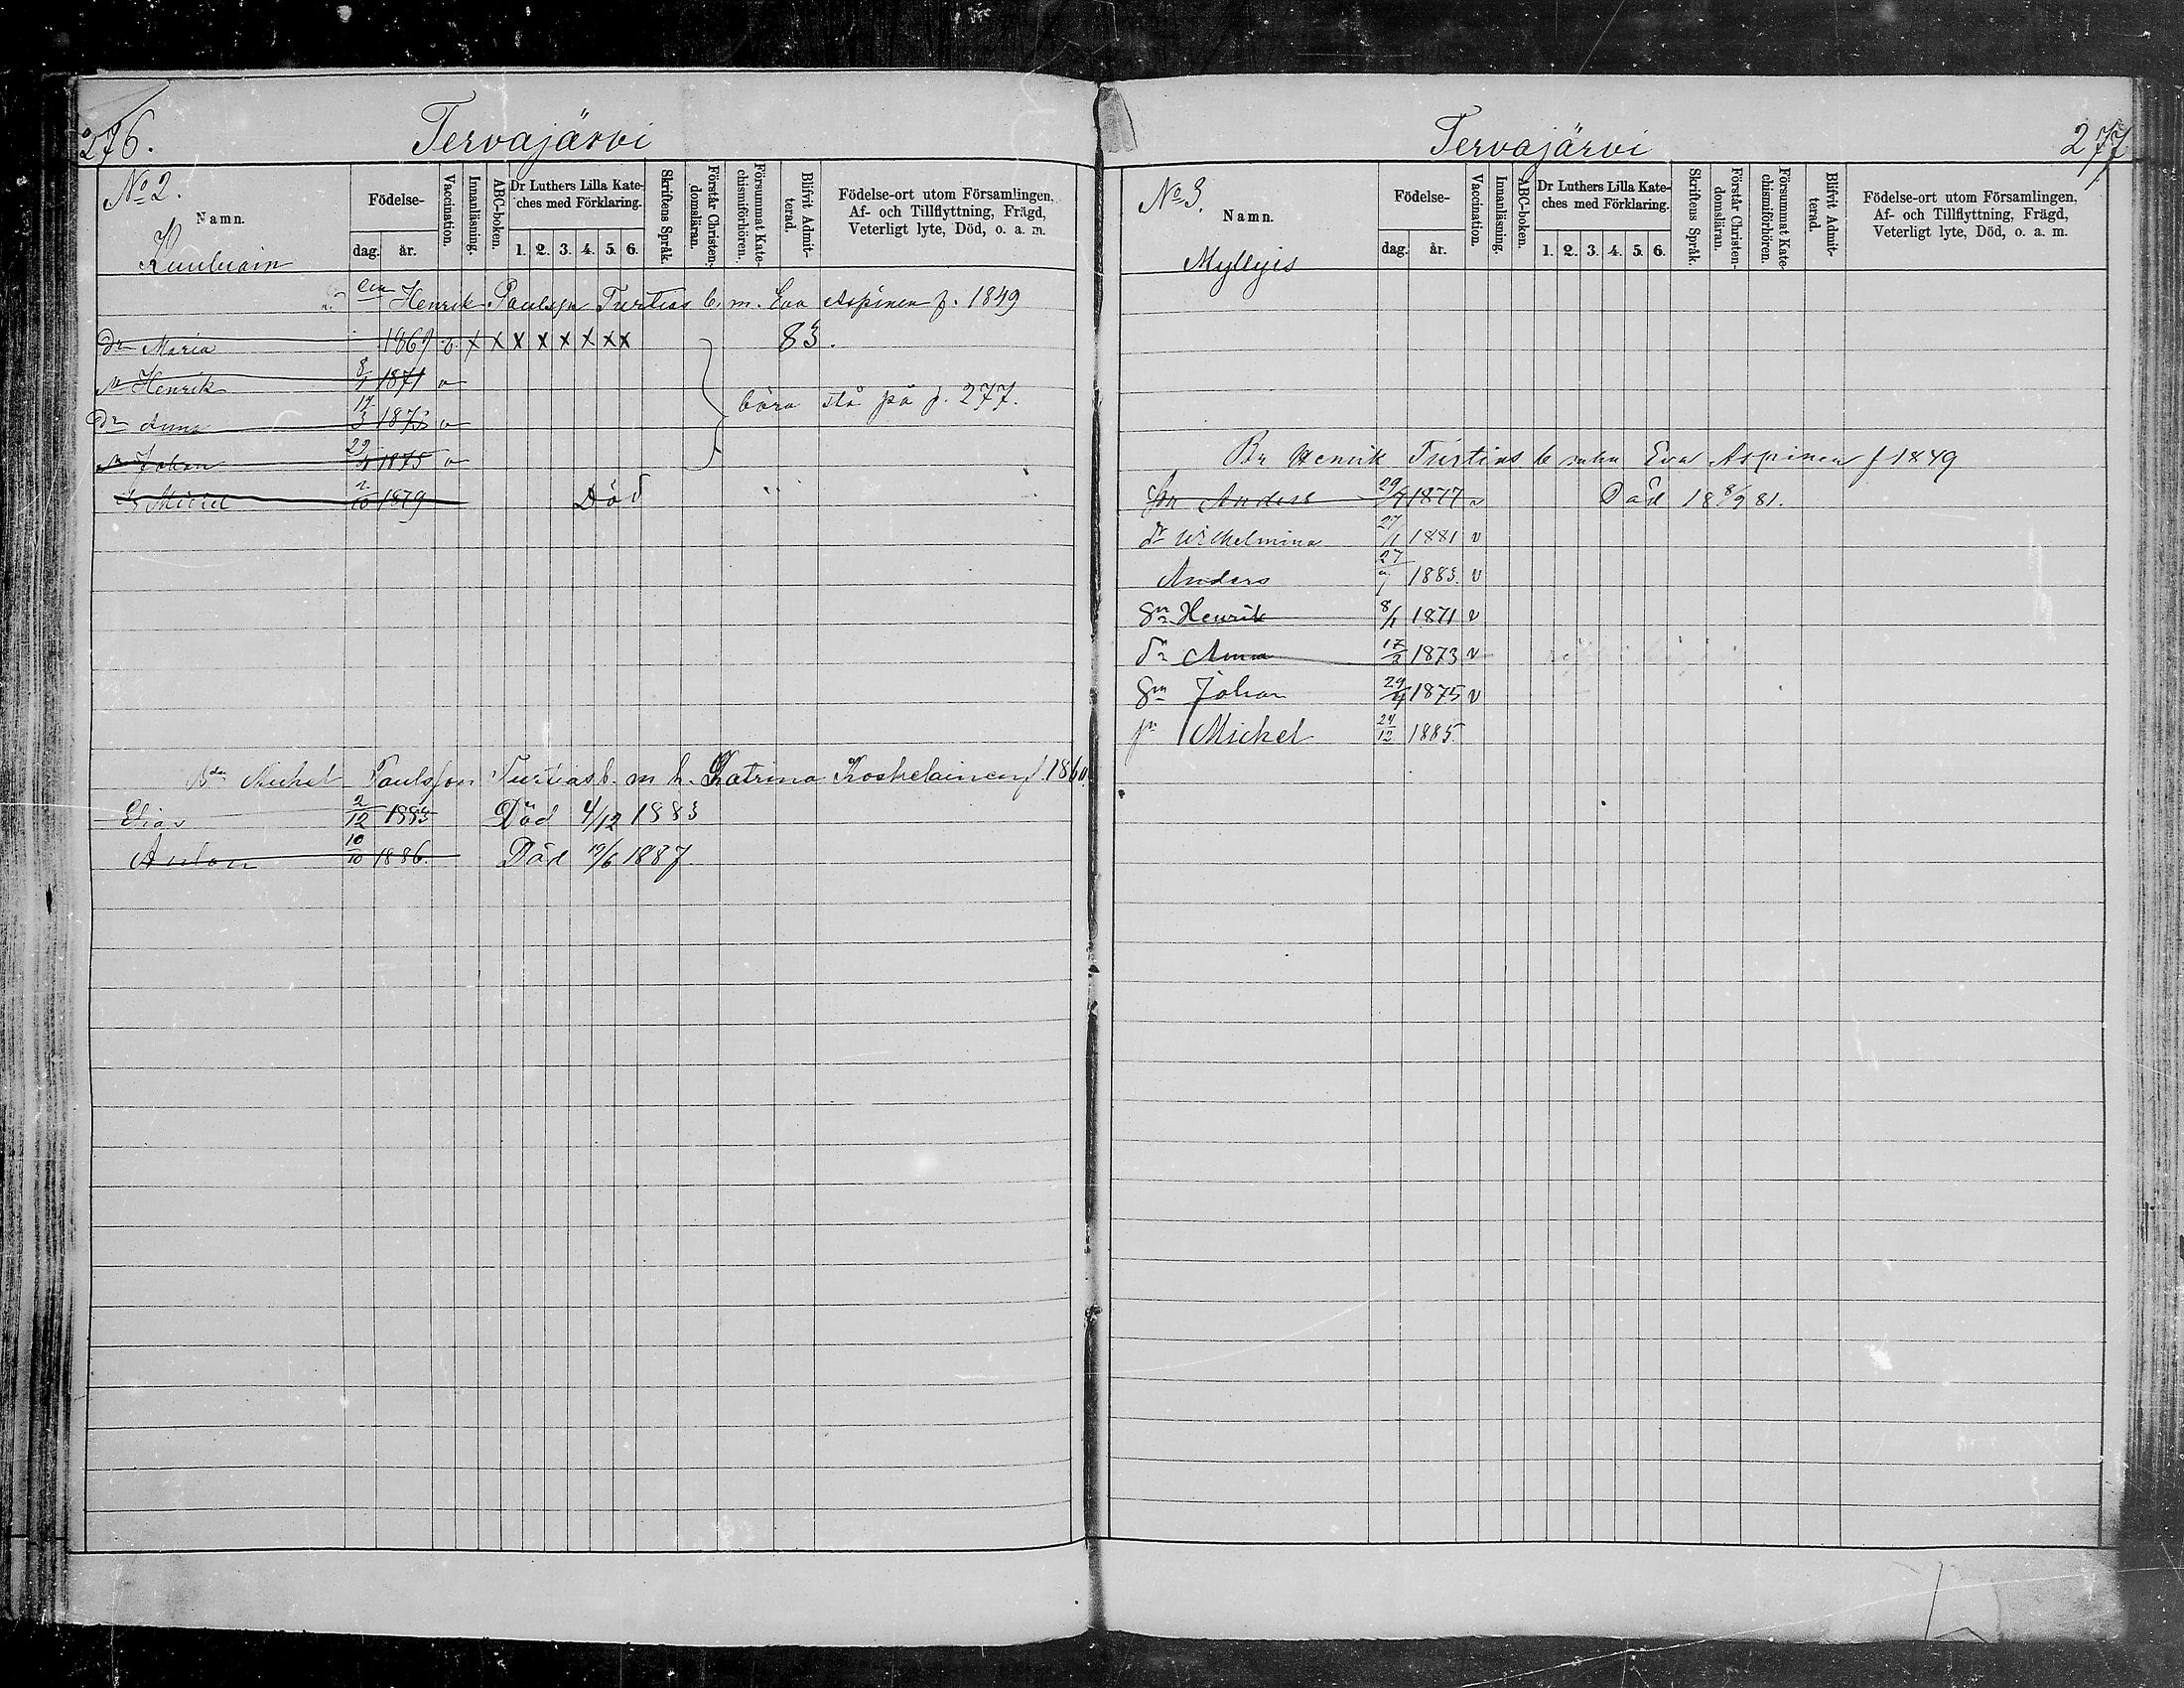 276.
Tervajärvi
No 2.
Namn.
Födelse-
dag. år.
Vaccination.
Innanläsning.
ABC-boken.
Dr Luthers Lilla Kate-
ches med Förklaring.
1. 2. 3. 4. 5. 6.
Skriftens Språk.
Förstår Christen-
domsläran.
Försummat Kate-
chismiförhören.
Blifvit Admit-
terad.
Födelse-ort utom Församlingen,
Af- och Tillflyttning, Frägd,
Veterligt lyte, Död, o. a. m.
Henrik Paulsson Turtias b. m. Eva Aspinen f. 1849
dr Maria 1869 v x x x x x x x x 83.
sn Henrik 8/1 1871 v
dr Anna 17/3 1873 v böra stå på p. 277.
sn Johan 29/4 1875 v
Mickel 2/10 1879 Död
Michel Paulsson Turtias b. m. h. Katrina Koskelainen f. 1860.
Elias 2/12 1883 Död 4/12 1883
Anton 10/10 1886. Död 19/6 1887
Tervajärvi
277
No 3.
Namn.
Myllyis
Födelse-
dag. år.
Vaccination.
Innanläsning.
ABC-boken.
Dr Luthers Lilla Kate-
ches med Förklaring.
1. 2. 3. 4. 5. 6.
Skriftens Språk.
Förstår Christen-
domsläran.
Försummat Kate-
chismiförhören.
Blifvit Admit-
terad.
Födelse-ort utom Församlingen,
Af- och Tillflyttning, Frägd,
Veterligt lyte, Död, o. a. m.
Br Henrik Turtias b Eva Aspinen f 1849
sn Anders 29/7 1877 v Död 18 8/9 81.
dr Wilhelmina 27/1 1881 v
Anders 27/7 1883. v
Sn Henrik 8/1 1871 v
dr Anna 17/3 1873 v
Sn Johan 29/4 1875 v
sn Mickel 24/12 1885.